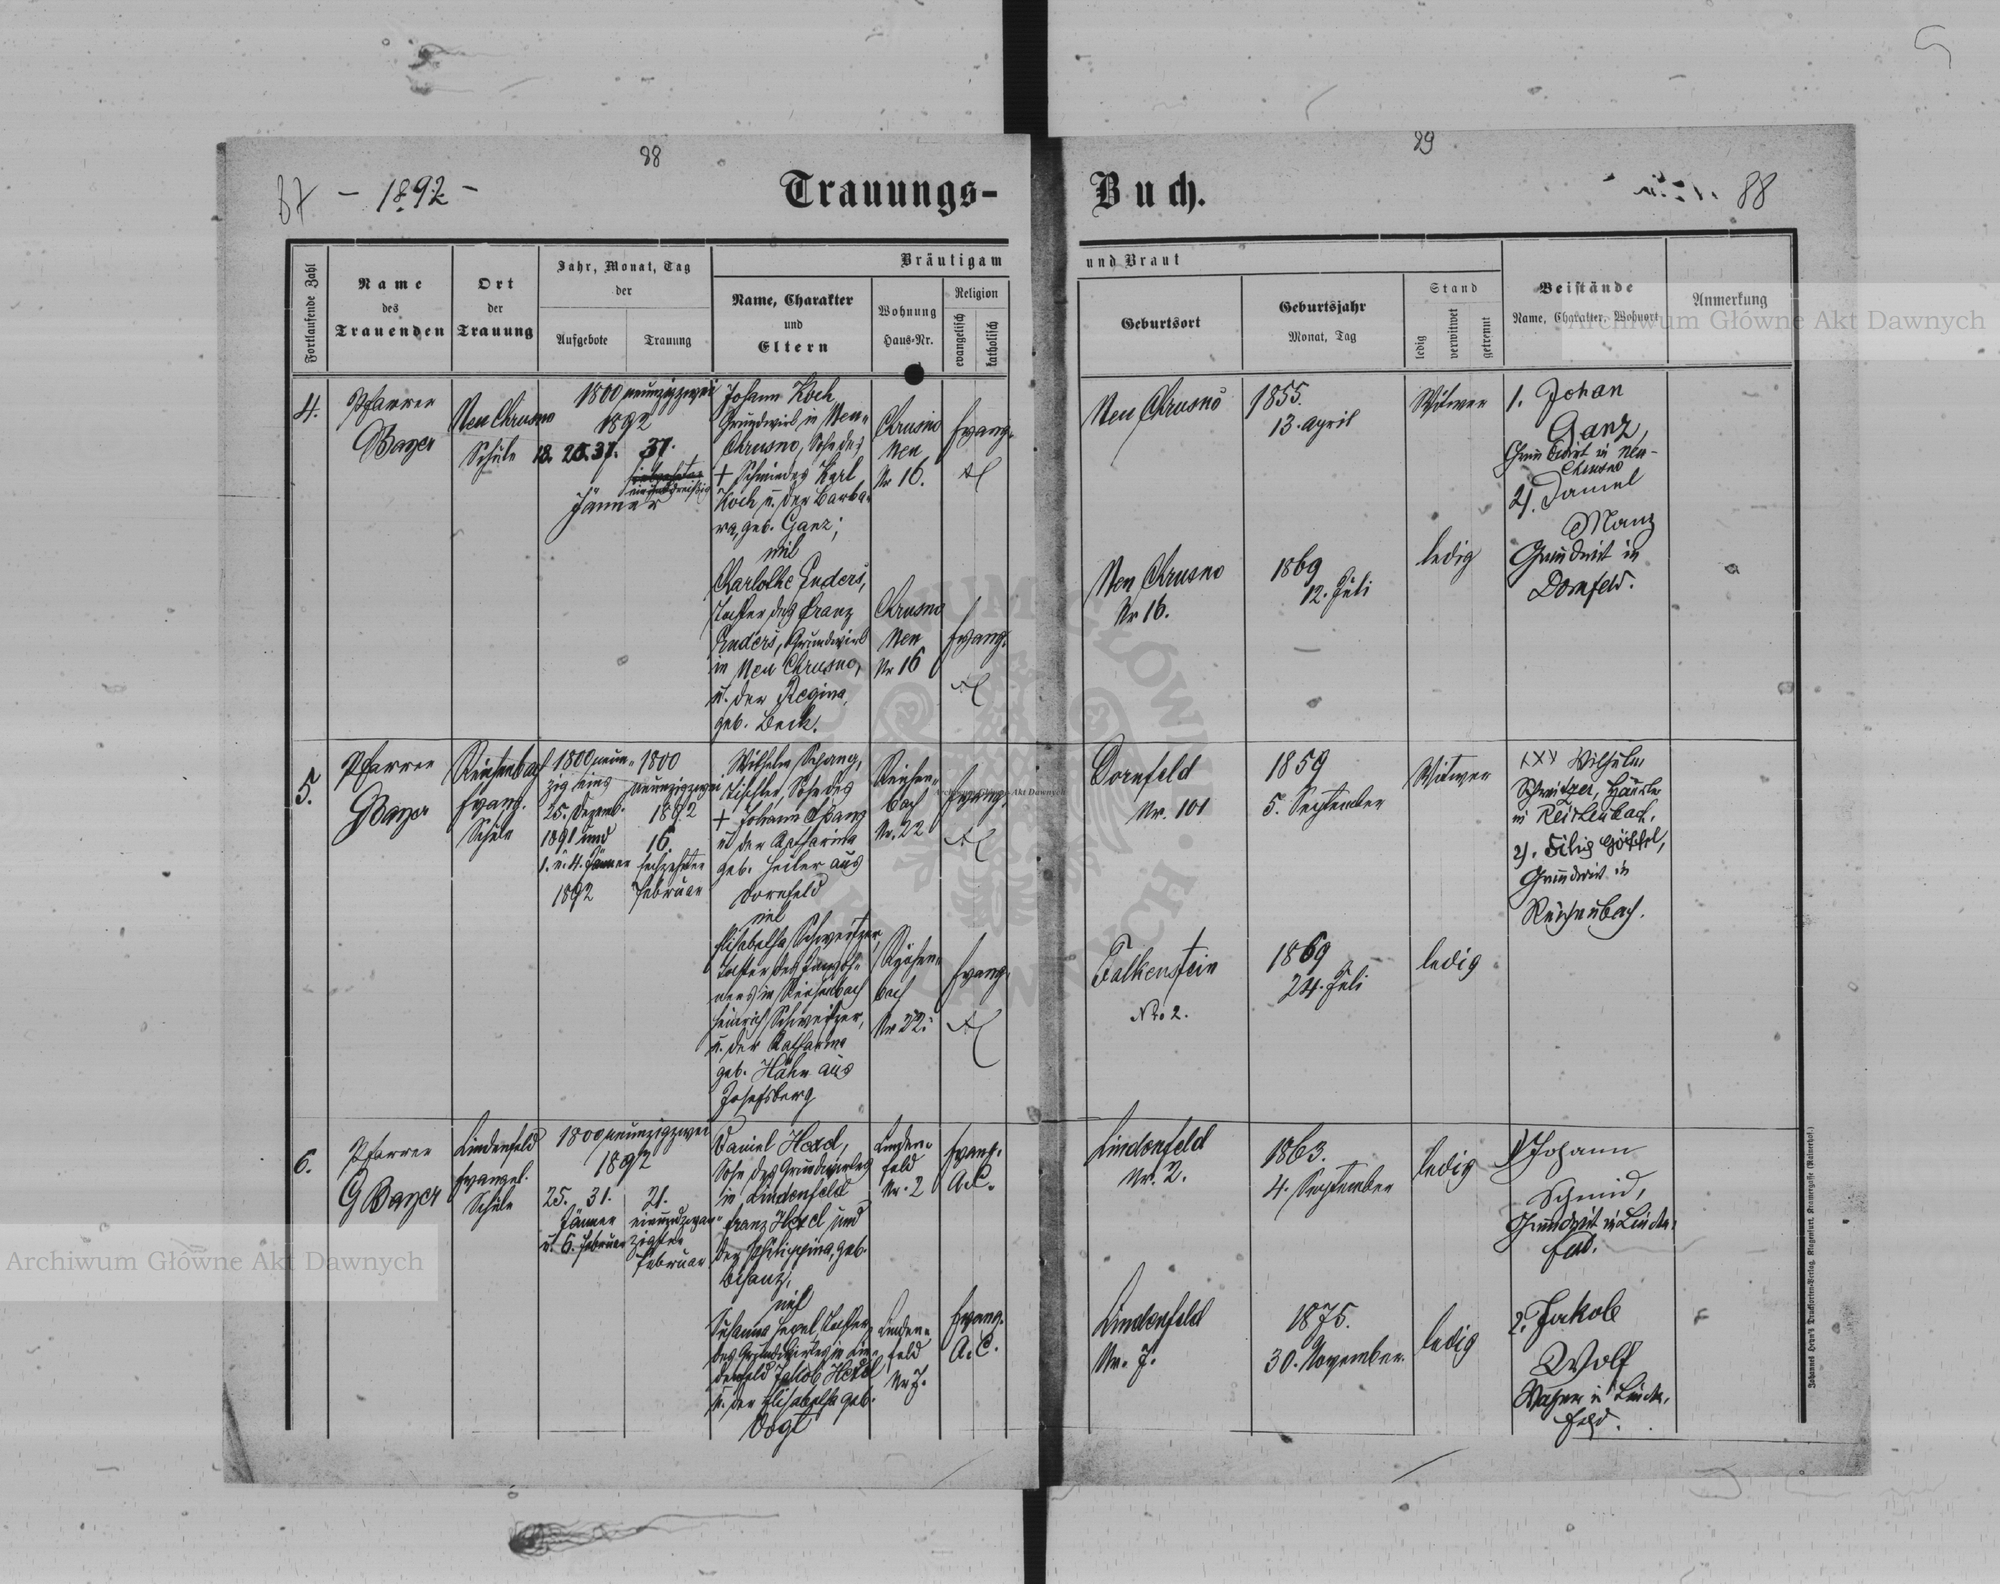 88
89
87 - 1892 -
Trauungs-
Buch.
88
Fortlaufende Zahl
Name
des
Trauenden
Ort
der
Trauung
Jahr, Monat, Tag
der
Aufgebote
Trauung
Bräutigam
Name, Charakter
und
Eltern
Wohnung
Haus-Nr.
Religion
evangelisch
katholisch
und Braut
Geburtsort
Geburtsjahr
Monat, Tag
Stand
ledig
verwitwet
getrennt
Beistände
Name, Charakter, Wohnort
Anmerkung
Archiwum Główne Akt Dawnych
4.
Pfarrer
Bayer
Neu Chrusno
Schule
1800 neunzigzwei
1892
31.
einunddreißig
Jänner
Johann Koch
Grundwirt in Neu-
Chrusno, Sohn des
+ Schmiedes Karl
Koch u. der Barba-
ra, geb. Ganz;
mit
Charlotte Enders,
Tochter des Franz
Enders, Grundwirt
in Neu Chrusno,
u. der Regina,
geb. Beck.
Chrusno
Neu
Nr 16.
Evang.
Chrusno
Neu
Nr 16
Evang.
Neu Chrusno
1855.
13. April
Witwer
Neu Chrusno
Nr 16.
1869
12. Juli
ledig
1. Johan
Ganz,
Grundwirt in Neu-
Chrusno
2). Daniel
Manz
Grundwirt in
Dornfeld.
5.
Pfarrer
Bayer
Reichenbach
Evang.
Schule
1800 neun-
zig eins
25. Dezemb.
1891 und
1. u. 4. Jänner
1892
1800
neunzigzwei
1892
16.
sechzehnter
Februar
Wilhelm
Tischler, Sohn des
+ Johann
u der Katharina
geb. Heiler aus
Dornfeld
mit
Elisabetha Schweitzer,
Tochter des Einwoh-
ners in Reichenbach
Heinrich Schweitzer,
u. der Katharina
geb. Hahn aus
Josefsberg
Reichen-
bach
Nr. 22
Evang.
Reichen-
bach
Nr 22.
Evang.
Dornfeld
Nr. 101
1859
5. September
Witwer
Falkenstein
No 2.
1869
24. Juli
ledig
Wilhelm
Schweitzer, Häusler
in Reichenbach,
2). Filip
Grundwirt in
Reichenbach.
6.
Pfarrer
G Bayer
Lindenfeld
evangel.
Schule
1800 neunzigzwei
1892
25. 31.
Jänner
u. 6. Februar
21.
einundzwan-
zigster
Februar
Daniel Hexel,
Sohn des Grundwirtes
in Lindenfeld
Franz Hexel und
der Philippina, geb.
Bisanz,
mit
Susanna Hexel, Tochter
des Grundwirtes in Lin-
denfeld Jakob Hexel
u. der Elisabetha geb.
Vogt
Linden-
feld
Nr. 2
Evang.
A.C.
Linden-
feld
Nr 7.
Evang.
A.C.
Lindenfeld
Nr. 2.
1863.
4. September
ledig
Lindenfeld
Nr. 7.
1875.
30. November.
ledig
1) Johann
Schmid,
Grundwirt in Linden-
feld.
2. Jakob
Wolf
Wagner in Linden-
feld.
Archiwum Główne Akt Dawnych